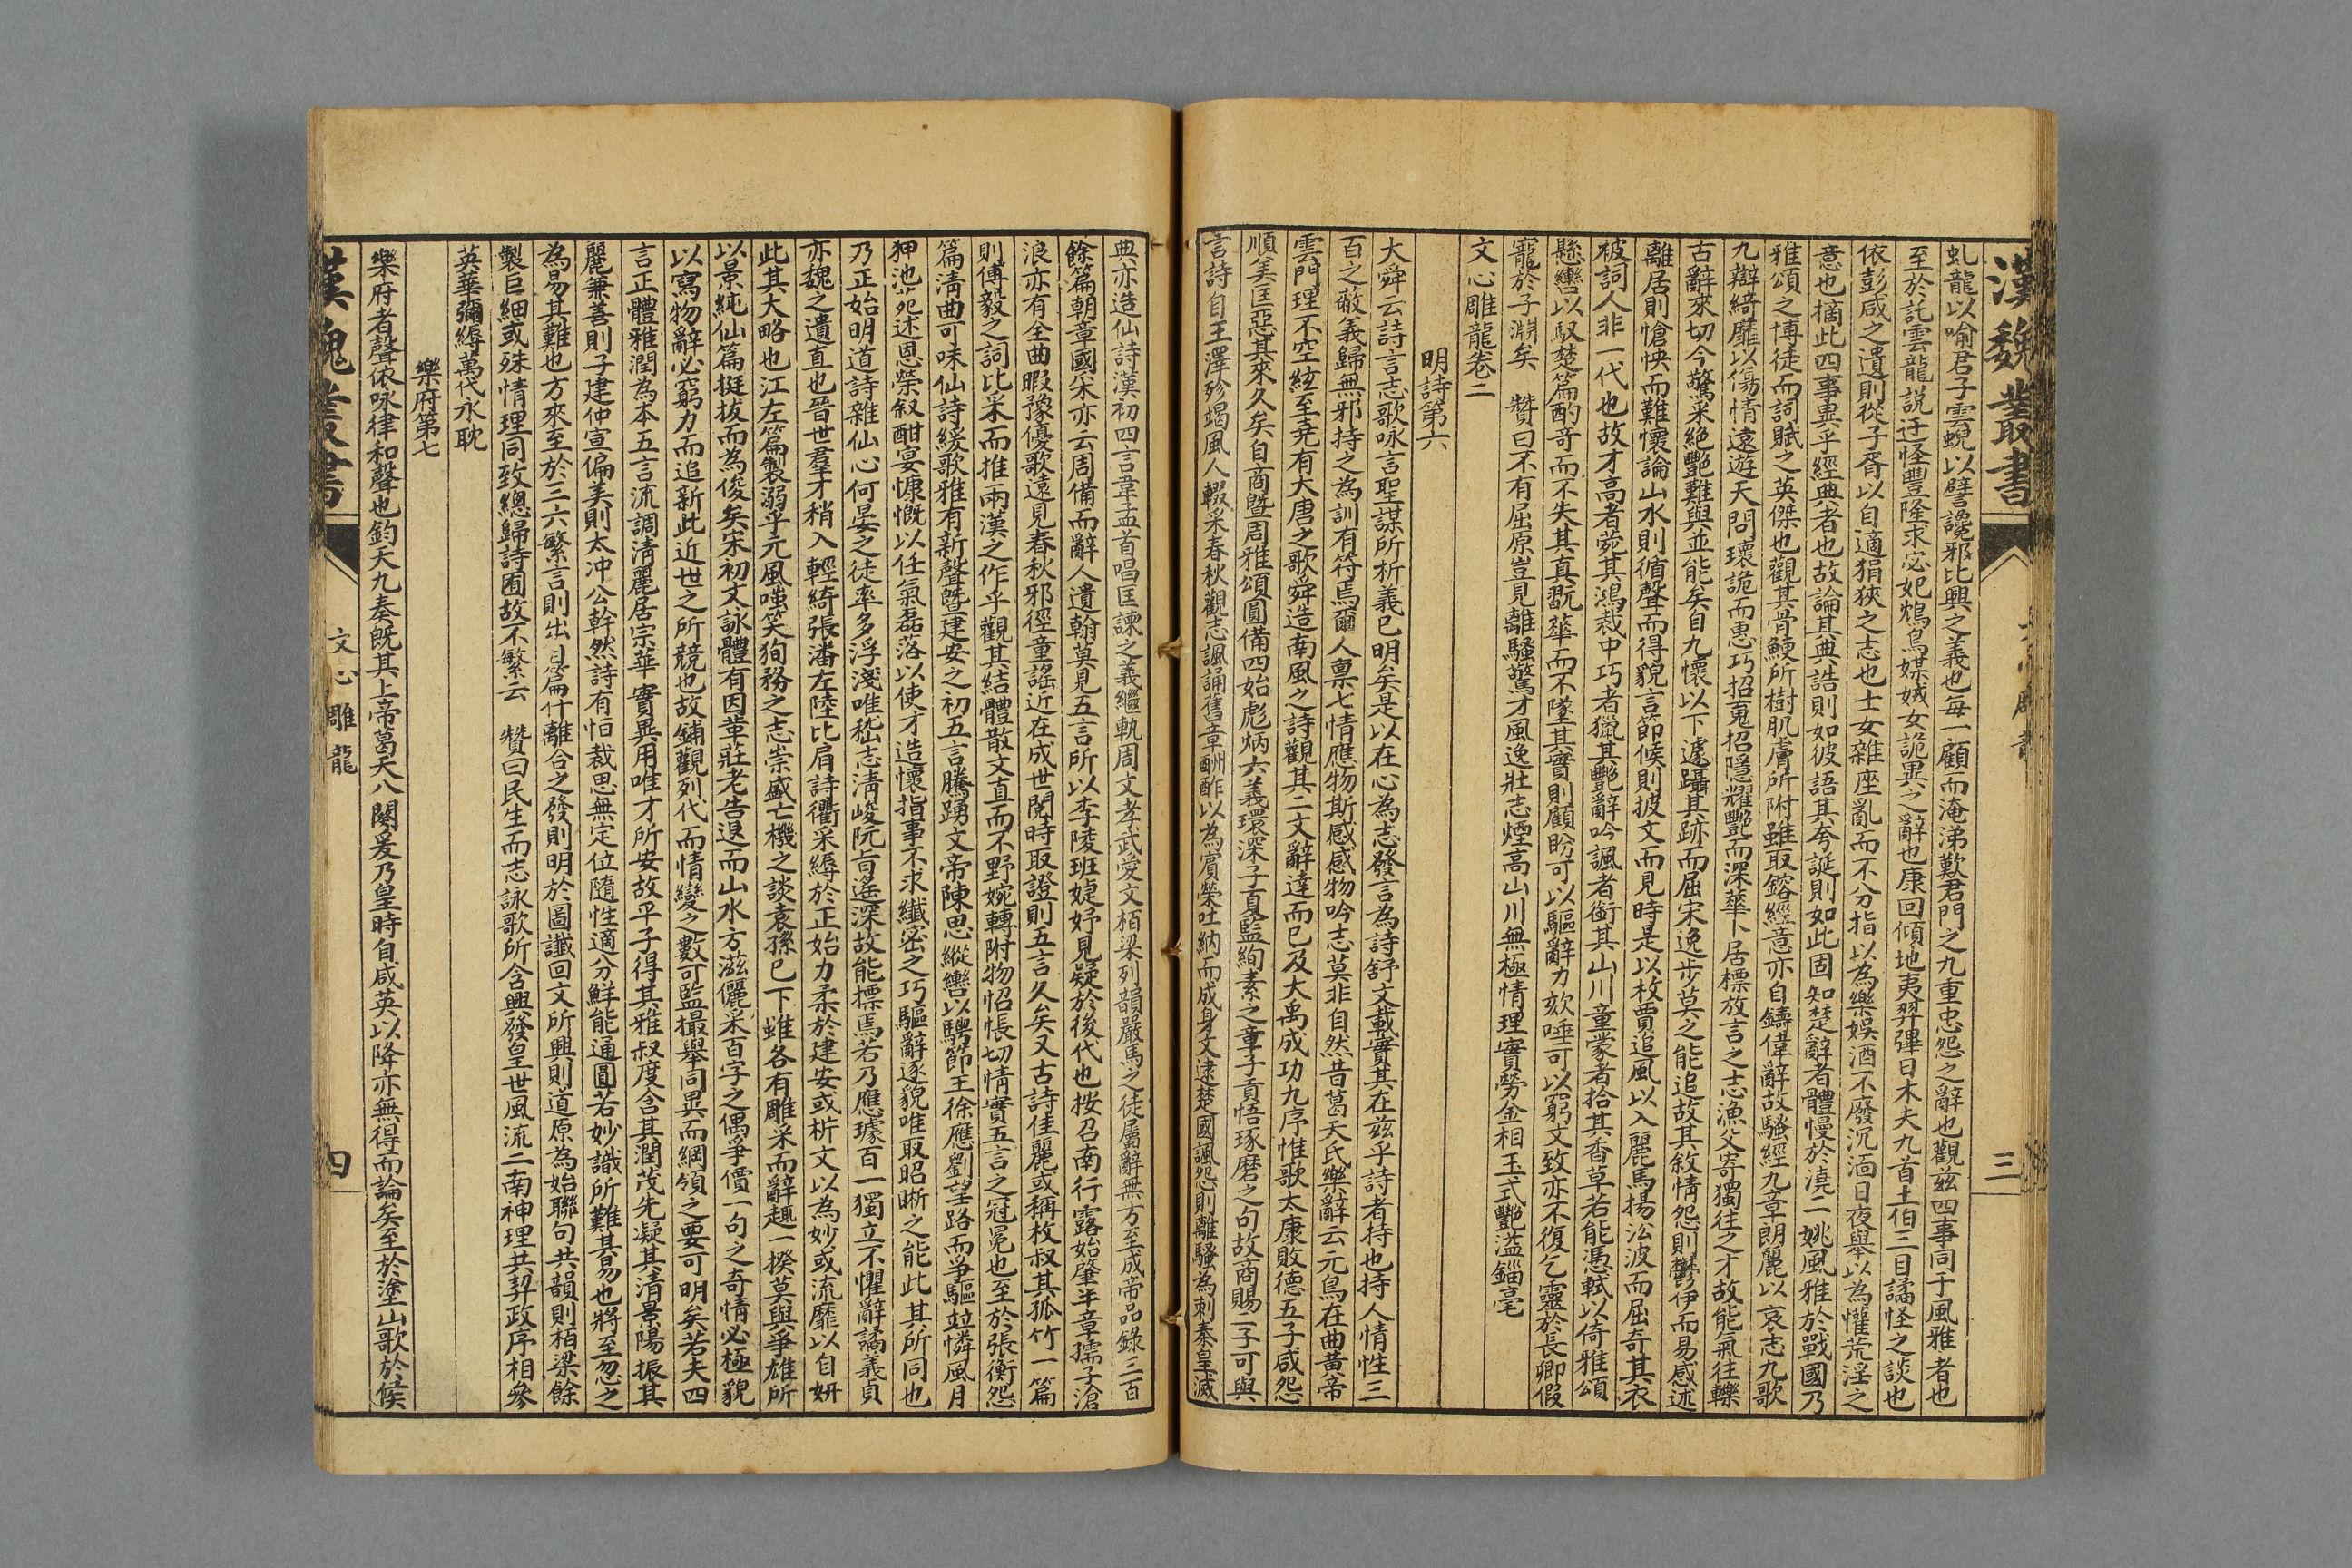 漢魏叢書
三
虬龍以喻君子雲蜺以譬讒邪比興之義也每一顧而淹涕歎君門之九重忠怨之辭也觀茲四事同于風雅者也
至於託雲龍説迂怪豐隆求宓妃鴆鳥媒娀女詭異之辭也康回傾地夷羿彃日木夫九首土伯三目譎怪之談也
依彭咸之遺則從子胥以自適狷狹之志也士女雜座亂而不分指以為樂娛酒不廢沉湎日夜舉以為懽荒淫之
意也摘此四事異乎經典者也故論其典誥則如彼語其夸誕則如此固知楚辭者體慢於澆二姚風雅於戰國乃
雅頌之博徒而詞賦之英傑也觀其骨鯁所樹肌膚所附雖取鎔經意亦自鑄偉辭故騷經九章朗麗以哀志九歌
九辯綺靡以傷情遠遊天問瓌詭而惠巧招䰟招隱耀艷而深華卜居標放言之志漁父寄獨往之才故能氣往轢
古辭來切今驚采絶艷難與並能矣自九懷以下遽躡其跡而屈宋逸步莫之能追故其敘情怨則鬱伊而易感述
離居則愴怏而難懷論山水則循聲而得貌言節候則披文而見時是以枚賈追風以入麗馬揚沿波而屈奇其衣
被詞人非一代也故才高者菀其鴻裁中巧者獵其艷辭吟諷者銜其山川童蒙者拾其香草若能憑軾以倚雅頌
懸轡以馭楚篇酌奇而不失其真翫華而不墜其實則顧盼可以驅辭力欬唾可以窮文致亦不復乞靈於長卿假
寵於子淵矣　贊曰不有屈原豈見離騷驚才風逸壯志煙高山川無極情理實勞金相玉式艷溢錙毫
文心雕龍卷二
明詩第六
大舜云詩言志歌咏言聖謀所析義已明矣是以在心為志發言為詩舒文載實其在兹乎詩者持也持人情性三
百之蔽義歸無邪持之為訓有符焉爾人禀七情應物斯感感物吟志莫非自然昔葛天氏樂辭云元鳥在曲黃帝
雲門理不空絃至堯有大唐之歌舜造南風之詩觀其二文辭達而已及大禹成功九序惟歌太康敗德五子咸怨
順美匡惡其來久矣自商曁周雅頌圓備四始彪炳六義環深子夏監絢素之章子貢悟琢磨之句故商賜二子可與
言詩自王澤殄竭風人輟采春秋觀志諷誦舊章酬酢以為賓榮吐納而成身文逮楚國諷怨則離騷為刺秦皇滅
典亦造仙詩漢初四言韋孟首唱匡諫之義繼軌周文孝武愛文栢梁列韻嚴馬之徒屬辭無方至成帝品錄三百
餘篇朝章國采亦云周備而辭人遺翰莫見五言所以李陵班婕妤見疑於後代也按召南行露始肇半章孺子滄
浪亦有全曲暇豫優歌遠見春秋邪徑童謠近在成世閱時取證則五言久矣又古詩佳麗或稱枚叔其孤竹一篇
則傅毅之詞比采而推兩漢之作乎觀其結體散文直而不野婉轉附物怊悵切情實五言之冠冕也至於張衡怨
篇清曲可味仙詩緩歌雅有新聲曁建安之初五言騰踴文帝陳思縱轡以騁節王徐應劉望路而爭驅竝憐風月
狎池苑述恩榮叙酣宴慷慨以任氣磊落以使才造懷指事不求纎密之巧驅辭逐貌唯取昭晰之能此其所同也
乃正始明道詩雜仙心何晏之徒率多浮淺唯嵇志清峻阮旨遙深故能標焉若乃應璩百一獨立不懼辭譎義貞
亦魏之遺直也晉世羣才稍入輕綺張潘左陸比肩詩衢采縟於正始力柔於建安或析文以為妙或流靡以自妍
此其大略也江左篇製溺乎元風嗤笑狥務之志崇盛亡機之談袁孫已下雖各有雕采而辭趣一揆莫與爭雄所
以景純仙篇挺拔而為俊矣宋初文詠體有因革莊老告退而山水方滋儷采百字之偶爭價一句之奇情必極貌
以寫物辭必窮力而追新此近世之所競也故鋪觀列代而情變之數可監撮舉同異而綱領之要可明矣若夫四
言正體雅潤為本五言流調清麗居宗華實異用唯才所安故平子得其雅叔度含其潤茂先凝其清景陽振其
麗兼善則子建仲宣偏美則太冲公幹然詩有恒裁思無定位隨性適分鮮能通圓若妙識所難其易也將至忽之
為易其難也方來至於三六繁言則出自篇什離合之發則明於圖讖回文所興則道原為始聯句共韻則栢梁餘
製巨細或殊情理同致總歸詩囿故不繁云　贊曰民生而志詠歌所含興發皇世風流二南神理共契政序相參
英華彌縟萬代永耽
樂府第七
樂府者聲依咏律和聲也鈞天九奏旣其上帝葛天八闋爰乃皇時自咸英以降亦無得而論矣至於塗山歌於候
漢魏叢書
文心雕龍
四